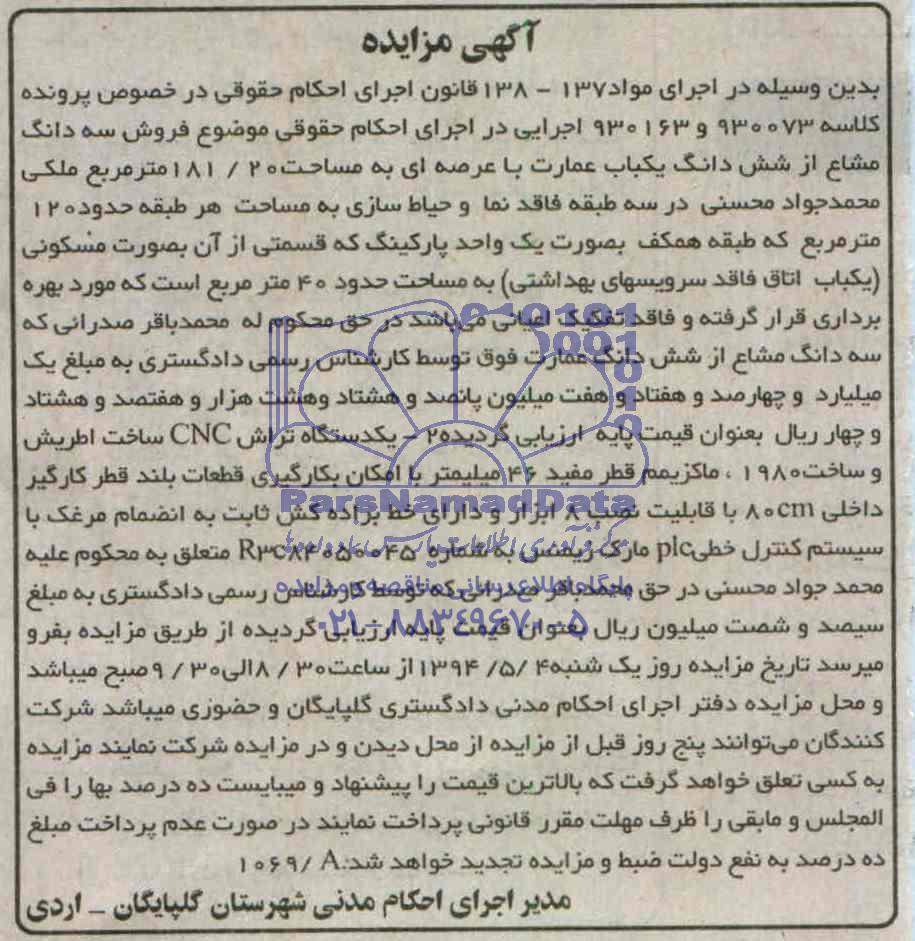 آگهی مزایده
بدین وسیله در اجرای مواد۱۳۷ - ۱۳۸قانون اجرای احکام حقوقی در خصوص پرونده
کلاسه ۹۳۰۰۷۳ و ۹۳۰۱۶۳ اجرایی در اجرای احکام حقوقی موضوع فروش سه دانگ
مشاع از شش دانگ یکباب عمارت با عرصه ای به مساحت۲۰ / ۱۸۱مترمربع ملکی
محمدجواد محسنی در سه طبقه فاقد نما و حیاط سازی به مساحت هر طبقه حدود۱۲۰
مترمربع که طبقه همکف بصورت یک واحد پارکینگ که قسمتی از آن بصورت مسکونی
(یکباب اتاق فاقد سرویسهای بهداشتی) به مساحت حدود ۴۰ متر مربع است که مورد بهره
برداری قرار گرفته و فاقد تفکیک اعیانی می‌باشد در حق محکوم له محمدباقر صدرانی که
سه دانگ مشاع از شش دانگ عمارت فوق توسط کارشناس رسمی دادگستری به مبلغ یک
میلیارد و چهارصد و هفتاد و هفت میلیون پانصد و هشتاد وهشت هزار و هفتصد و هشتاد
و چهار ریال بعنوان قیمت پایه ارزیابی گردیده۲ - یکدستگاه تراش CNC ساخت اطریش
و ساخت۱۹۸۰ ، ماکزیمم قطر مفید ۴۶ میلیمتر با امکان بکارگیری قطعات بلند قطر کارگیر
داخلی ۸۰cm با قابلیت نصب۸ ابزار و دارای خط براده کش ثابت به انضمام مرغک با
سیستم کنترل خطیplc مارک زیمنس به شماره R۳c۸۴۰۵۰۰۴۵ متعلق به محکوم علیه
محمد جواد محسنی در حق محمدباقر صدرانی که توسط کارشناس رسمی دادگستری به مبلغ
سیصد و شصت میلیون ریال بعنوان قیمت پایه ارزیابی گردیده از طریق مزایده بفرو
میرسد تاریخ مزایده روز یک شنبه۴ /۵/ ۱۳۹۴ از ساعت۳۰ / ۸الی۳۰ / ۹صبح میباشد
و محل مزایده دفتر اجرای احکام مدنی دادگستری گلپایگان و حضوری میباشد شرکت
کنندگان می‌توانند پنج روز قبل از مزایده از محل دیدن و در مزایده شرکت نمایند مزایده
به کسی تعلق خواهد گرفت که بالاترین قیمت را پیشنهاد و میبایست ده درصد بها را فی
المجلس و مابقی را ظرف مهلت مقرر قانونی پرداخت نمایند در صورت عدم پرداخت مبلغ
ده درصد به نفع دولت ضبط و مزایده تجدید خواهد شد.A /۱۰۶۹
مدیر اجرای احکام مدنی شهرستان گلپایگان - اردی
ParsNamadData
پایگاه اطلاع رسانی مناقصه و مزایده
۰۲۱-۸۸۳۴۹۶۷۰-۵